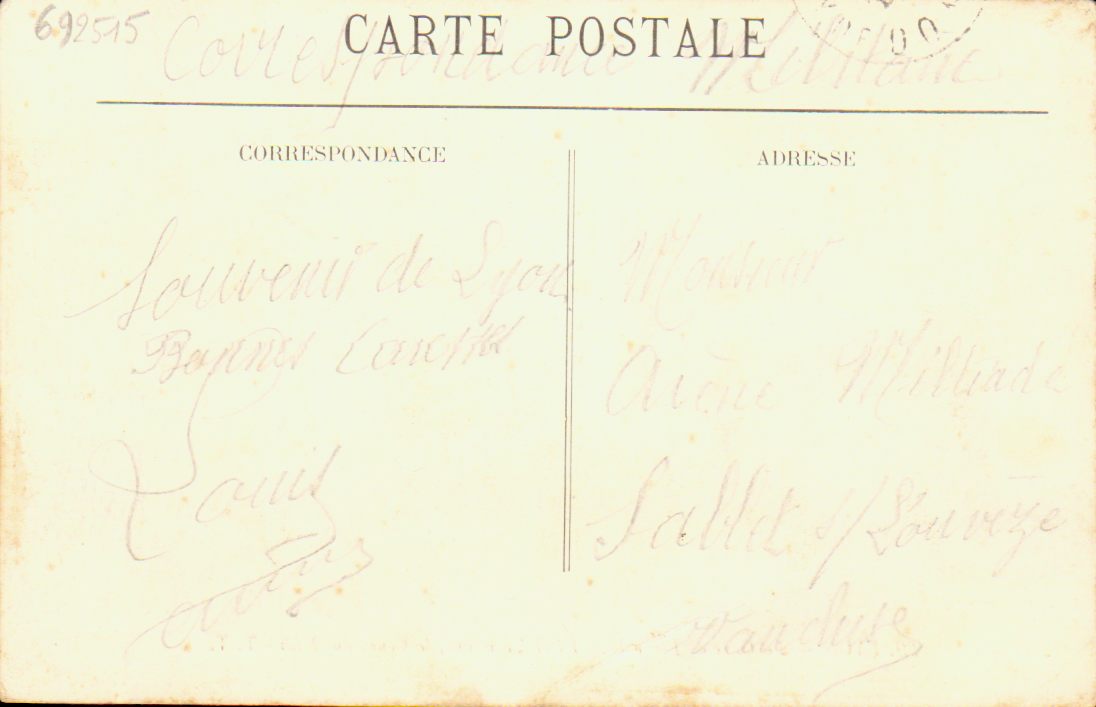 692515
CARTE POSTALE
Correspondance Militaire
CORRESPONDANCE
ADRESSE
Souvenir de Lyon
Bonnes Caresses
Louis
Monsieur
Milliade
Sablet s/ L'ouvèze
Vaucluse